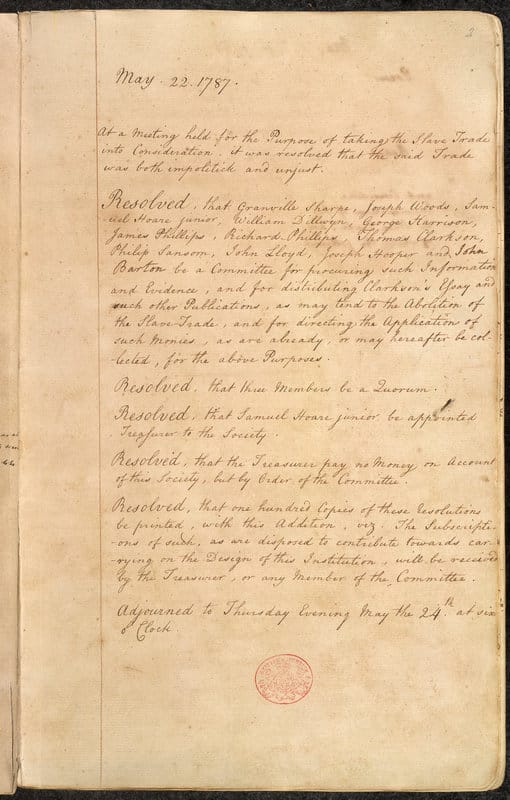 2
May . 22. 1787 .
At a Meeting held for the Purpose of taking the Slave Trade
into Consideration , it was resolved that the said Trade
was both impolitick and unjust .
Resolved , that Granville Sharpe , Joseph Woods , Sam-
uel Hoare junior , William Dillwyn , George Harrison ,
James Phillips , Richard Phillips , Thomas Clarkson ,
Philip Sansom , John Lloyd , Joseph Hooper and John
Barton be a Committee for procuring such Information
and Evidence , and for distributing Clarkson's Essay and
such other Publications , as may tend to the Abolition of
the Slave-Trade , and for directing the Application of
such Monies , as are already , or may hereafter be col-
lected , for the above Purposes .
Resolved , that three Members be a Quorum .
Resolved , that Samuel Hoare junior be appointed
Treasurer to the Society .
Resolved , that the Treasurer pay no Money on Account
of this Society , but by Order of the Committee .
Resolved , that one hundred Copies of these Resolutions
be printed , with this Addition , viz . The Subscripti-
-ons of such , as are disposed to contribute towards car-
-rying on the Design of this Institution , will be received
by the Treasurer , or any Member of the Committee .
Adjourned to Thursday Evening May the 24.th at six
o'Clock